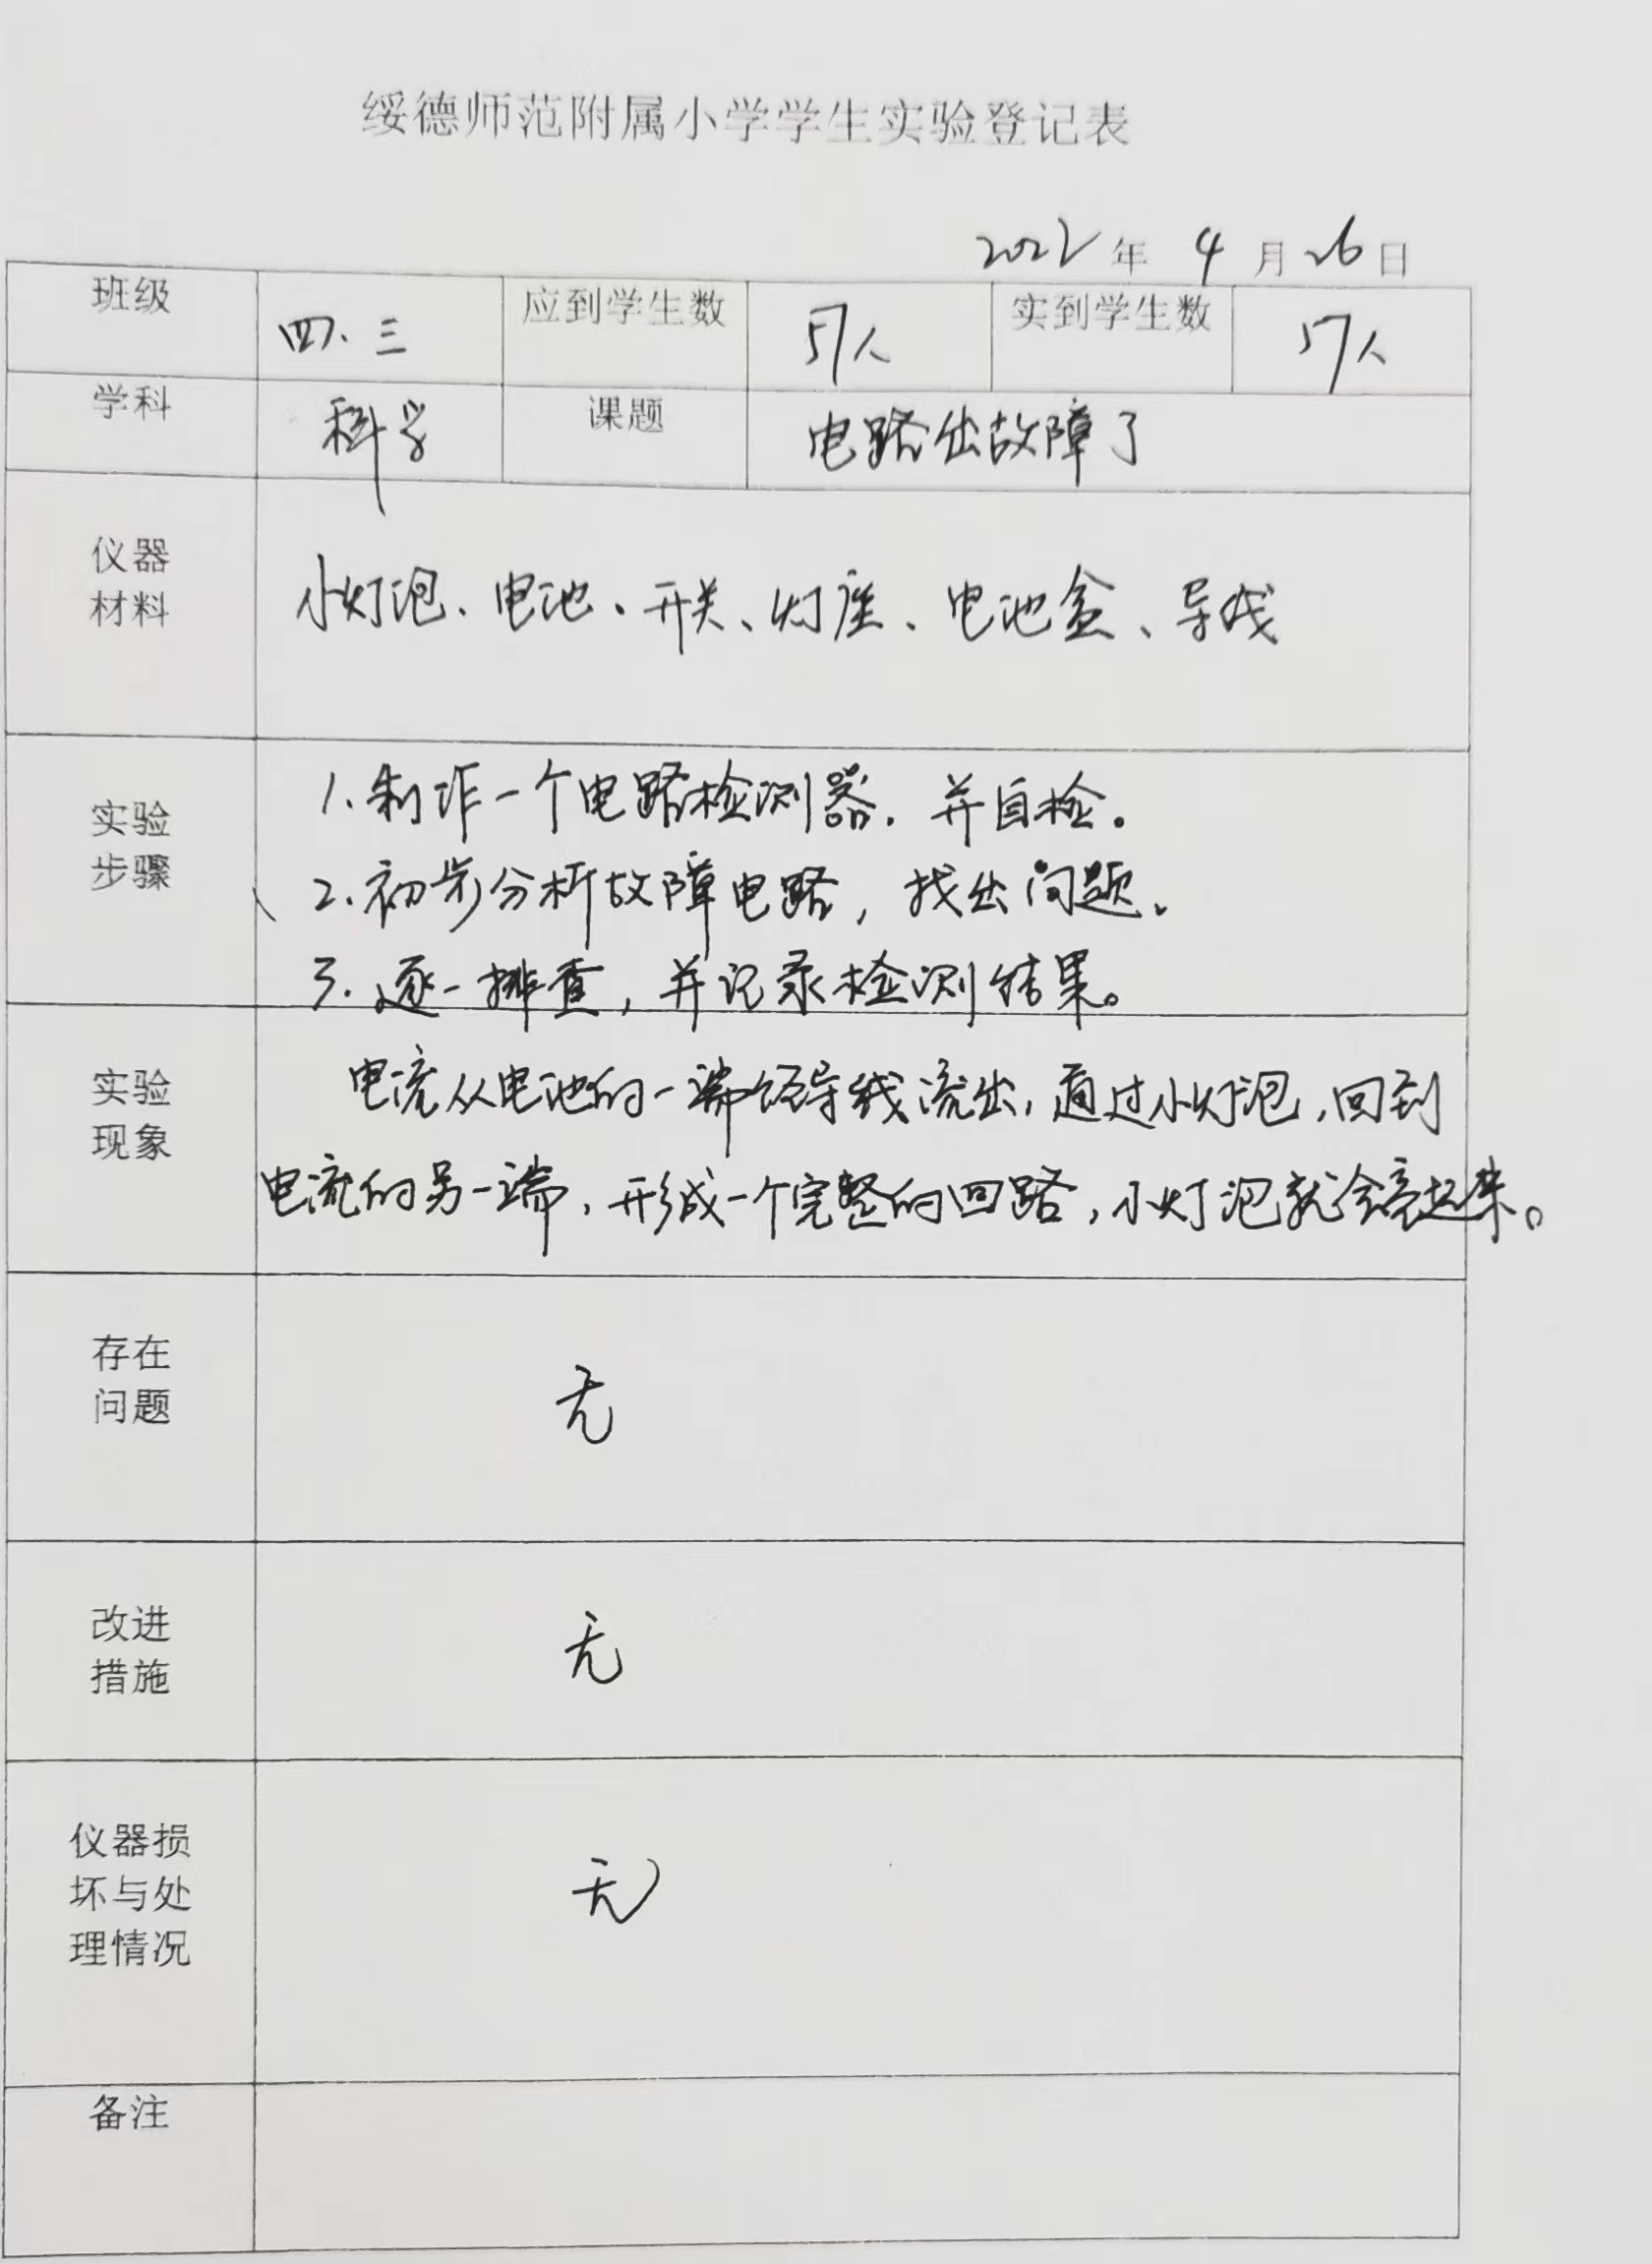 绥德师范附属小学学生实验登记表
2022年 4月26日
班级 四.三 应到学生数 57人 实到学生数 57人
学科 科学 课题 电路出故障了
仪器
材料
小灯泡、电池、开关、灯座、电池盒、导线
实验
步骤
1.制作一个电路检测器,并自检。
2.初步分析故障电路,找出问题。
3.逐一排查,并记录检测结果。
实验
现象
电流从电池的一端经导线流出,通过小灯泡,回到
电流的另一端,形成一个完整的回路,小灯泡就会亮起来。
存在
问题
无
改进
措施
无
仪器损
坏与处
理情况
无
备注